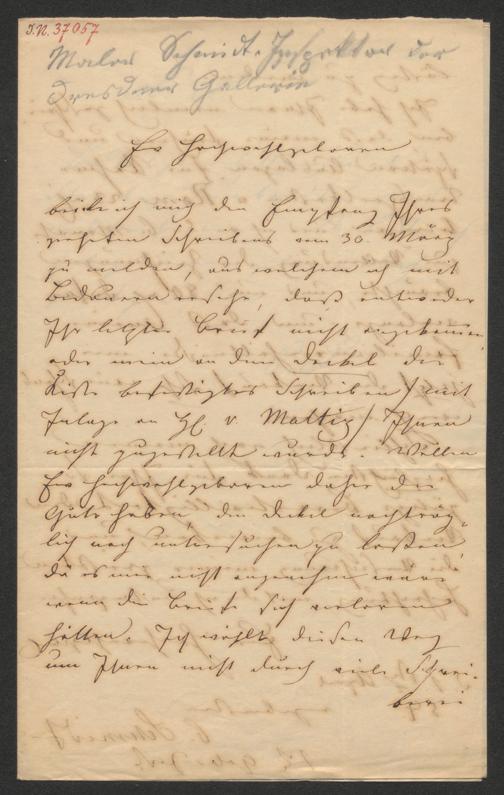 J.N. 37057
Maler Schmidt, Inspektor der
Dresdner Gallerie
Ew Hochwohlgeboren
beeile ich mich den Empfang Ihres
geehrten Schreibens vom 30. März
zu melden, aus welchem ich mit
Bedauern ersehe, daß entweder
Ihr letzter Brief nicht angekommen
oder mein an dem Deckel der
Kiste befestigtes Schreiben / mit
Inlage an H. v. Mattig / Ihnen
nicht zugestellt wurde. Wollen
Ew Hochwohlgeboren daher die
Güte haben, den Deckel nachträg-
lich noch untersuchen zu laßen,
da es mir nicht angenehm wäre
wenn die Briefe sich verloren
hätten. Ich wählte diesen Weg
um Ihnen nicht durch viele Schrei-
berei